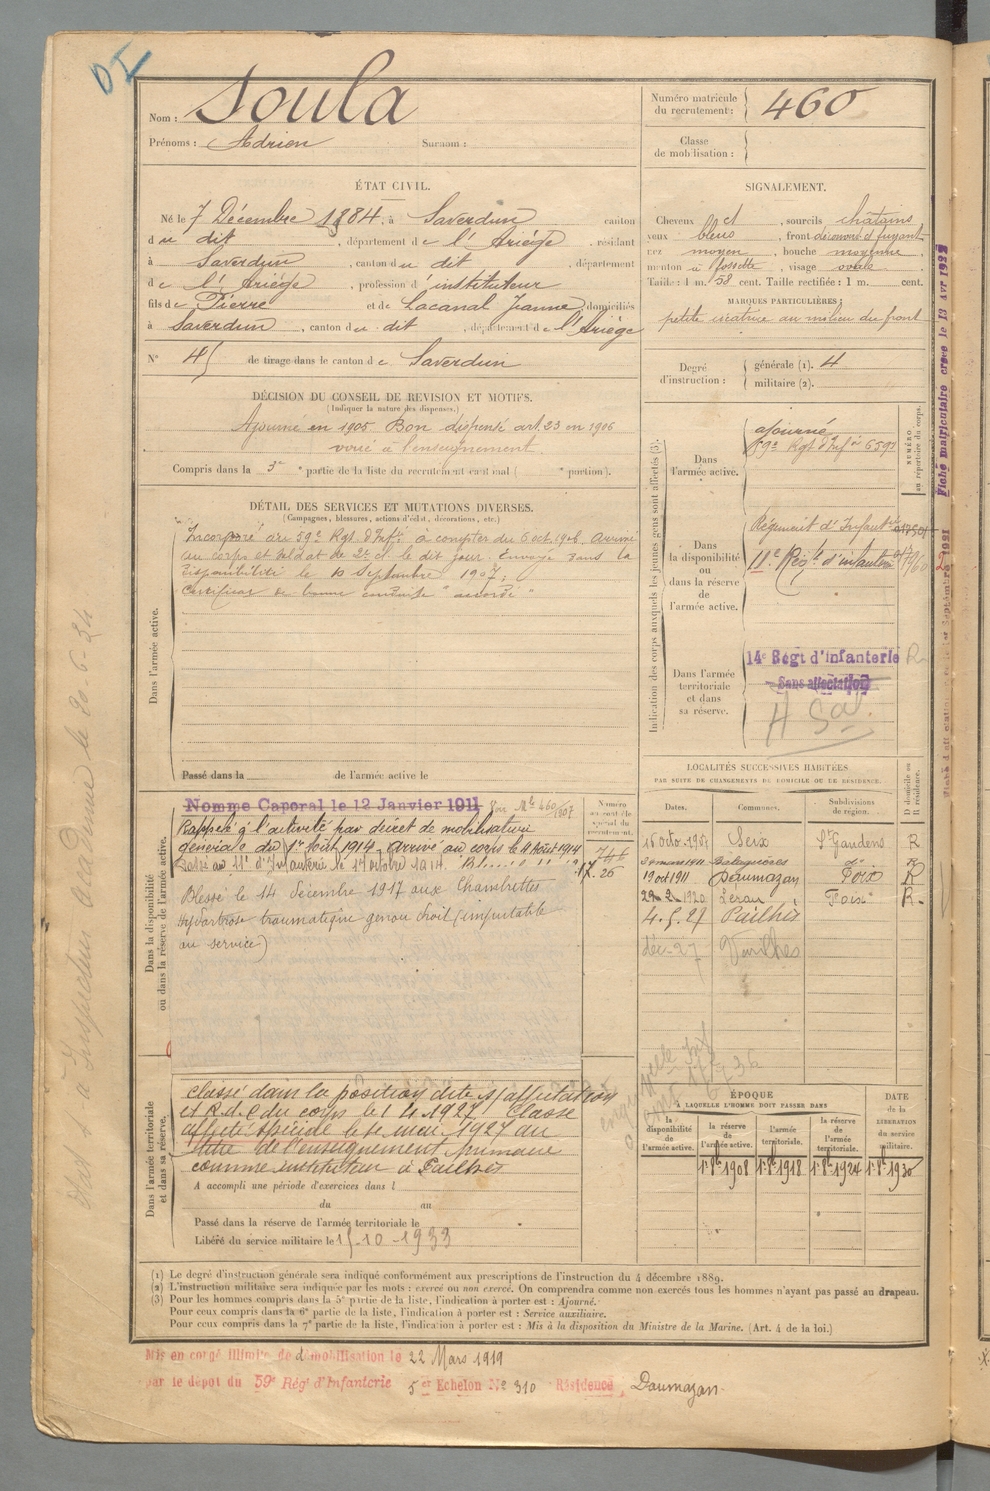 DI
Nom : Soula
Prénoms : Adrien Surnom :
Numéro matricule du recrutement : 460
Classe de mobilisation :
ÉTAT CIVIL.
Né le 7 Décembre 1884, à Saverdun canton
du dit, département de l'Ariège, résidant
à Saverdun, canton du dit, département
de l'Ariège, profession d'instituteur
fils de Pierre et de Lacanal Jeanne, domiciliés
à Saverdun, canton du dit, département de l'Ariège
N° 45 de tirage dans le canton de Saverdun
SIGNALEMENT.
Cheveux et, sourcils châtains
yeux bleus, front découvert et fuyant
nez moyen, bouche moyenne
menton à fossette, visage ovale
Taille : 1 m. 58 cent. Taille rectifiée : 1 m. cent.
MARQUES PARTICULIÈRES :
petite cicatrice au milieu du front
Degré d'instruction : générale (1). 4
militaire (2).
DÉCISION DU CONSEIL DE REVISION ET MOTIFS.
(Indiquer la nature des dispenses.)
Ajourné en 1905 Bon dispensé art. 23 en 1906
voué à l'enseignement
Compris dans la 3e partie de la liste du recrutement cantonal ( portion).
DÉTAIL DES SERVICES ET MUTATIONS DIVERSES.
(Campagnes, blessures, actions d'éclat, décorations, etc.)
Dans l'armée active.
Incorporé au 59e Rgt d'Inf. à compter du 6 oct. 1906. Arrivé
au corps et soldat de 2e cl. le dit jour. Envoyé dans la
disponibilité le 10 Septembre 1907.
Certificat de bonne conduite "accordé"
Passé dans la de l'armée active le
Indication des corps auxquels les jeunes gens sont affectés (3).
NUMÉRO au répertoire du corps.
Dans l'armée active.
ajourné
59e Rgt d'Inf. 6597
Dans la disponibilité ou dans la réserve de l'armée active.
Régiment d'Infant
11e Rég. d'infanterie
Dans l'armée territoriale et dans sa réserve.
14e Régt d'Infanterie R
Sans affectation
LOCALITÉS SUCCESSIVES HABITÉES
PAR SUITE DE CHANGEMENTS DE DOMICILE OU DE RÉSIDENCE.
D domicile ou R résidence.
Dates. Communes. Subdivisions de région.
Seix St Gaudens R
do R
19 oct 1911 Daumazan Foix R
1920 Léran Foix R
4.5.27 Pailhès
déc-27 Varilhes
Dans la disponibilité ou dans la réserve de l'armée active.
Nommé Caporal le 12 Janvier 1911
Rappelé à l'activité par décret de mobilisation
générale du 1er Août 1914. Arrivé au corps le 4 Août 1914
Passé au 11e d'Infanterie le 17 octobre 1914.
Blessé le 14 décembre 1917 aux Chambrettes
Hydarthrose traumatique genou droit (imputable
au service)
Dans l'armée territoriale et dans sa réserve.
Classé dans la position dite s/affectation
et R.d.C du corps le 1 4 1927 Classé
affecté spécial le 1er mai 1927 au
titre de l'enseignement primaire
comme instituteur à Pailhès
A accompli une période d'exercices dans l
du au
Passé dans la réserve de l'armée territoriale le
Libéré du service militaire le 15-10-1933
ÉPOQUE
À LAQUELLE L'HOMME DOIT PASSER DANS
la disponibilité de l'armée active. la réserve de l'armée active. l'armée territoriale. la réserve de l'armée territoriale.
DATE de la LIBÉRATION du service militaire.
1er 8bre 1908 1er 8bre 1918 1er 8bre 1924 1er 8bre 1930
(1) Le degré d'instruction générale sera indiqué conformément aux prescriptions de l'instruction du 4 décembre 1889.
(2) L'instruction militaire sera indiquée par les mots : exercé ou non exercé. On comprendra comme non exercés tous les hommes n'ayant pas passé au drapeau.
(3) Pour les hommes compris dans la 5e partie de la liste, l'indication à porter est : Ajourné.
Pour ceux compris dans la 6e partie de la liste, l'indication à porter est : Service auxiliaire.
Pour ceux compris dans la 7e partie de la liste, l'indication à porter est : Mis à la disposition du Ministre de la Marine. (Art. 4 de la loi.)
Mis en congé illimité de démobilisation le 22 Mars 1919
par le dépôt du 59e Rég. d'Infanterie 5e Echelon N° 310 Résidence, Daumazan